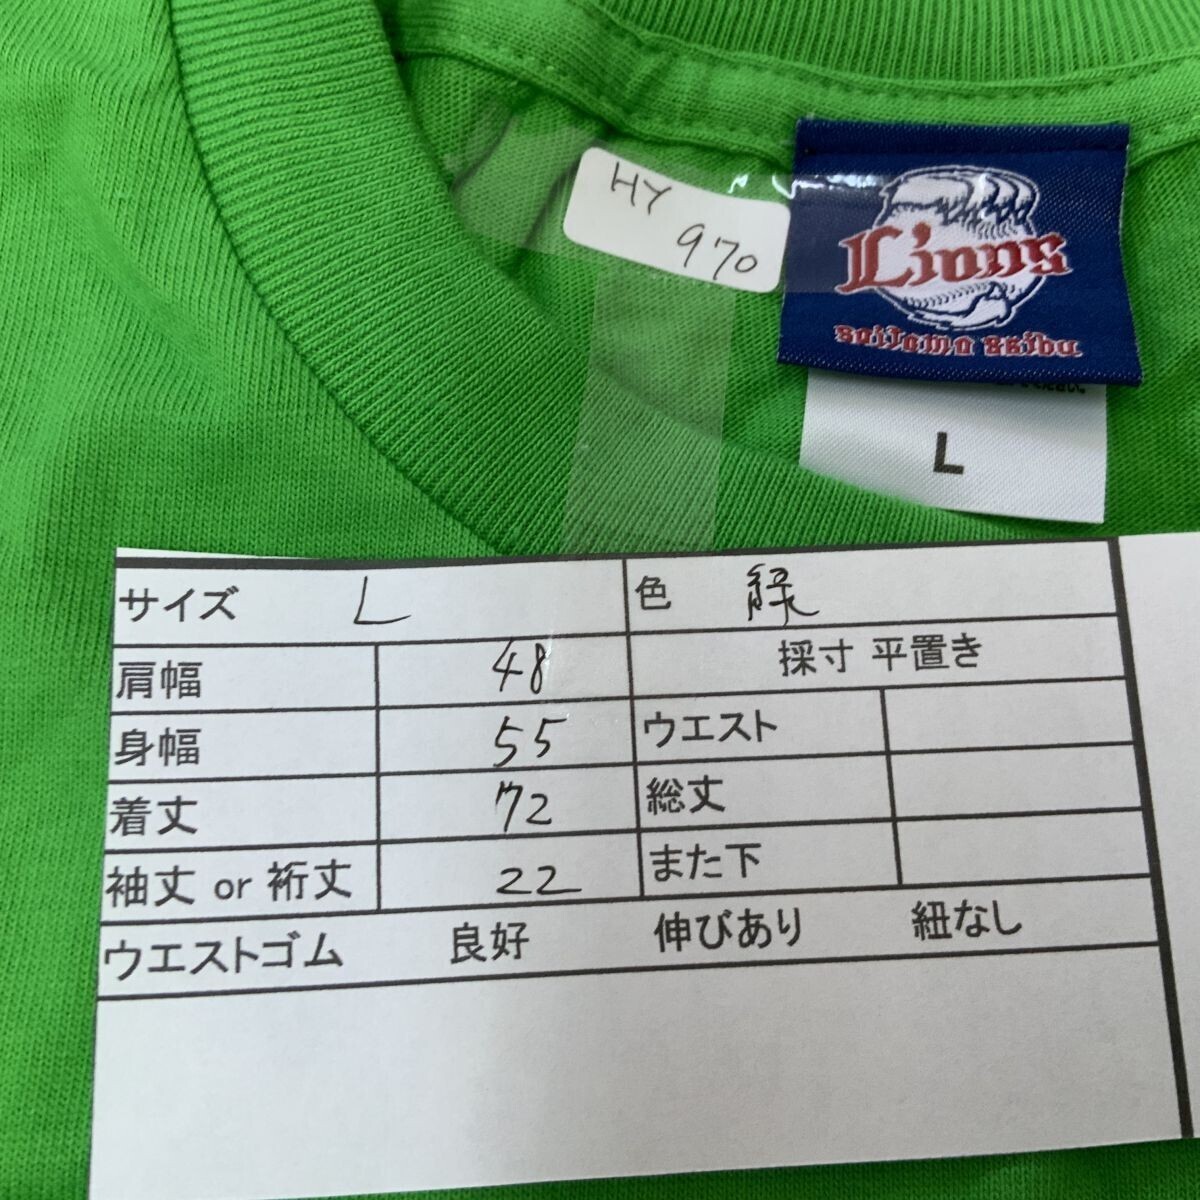 HY
970
Lions
saitama seibu
L
サイズ L 色 緑
肩幅 48 採寸 平置き
身幅 55 ウエスト
着丈 72 総丈
袖丈 or 裄丈 22 また下
ウエストゴム 良好 伸びあり 紐なし